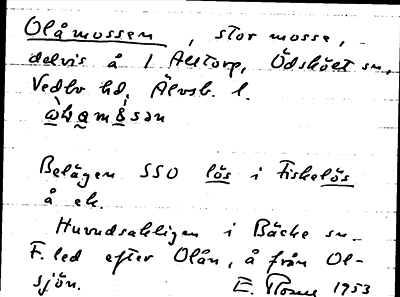 Olåmossen, stor mosse,
delvis å 1 Alltorp, Ödskölt sn,
Vedbo hd, Älvsb. l.
Belägen SSO lös i Fiskelös
å ek.
Huvudsakligen i Bäcke sn.
F. led efter Olån, å från Ol-
sjön. E. 1953